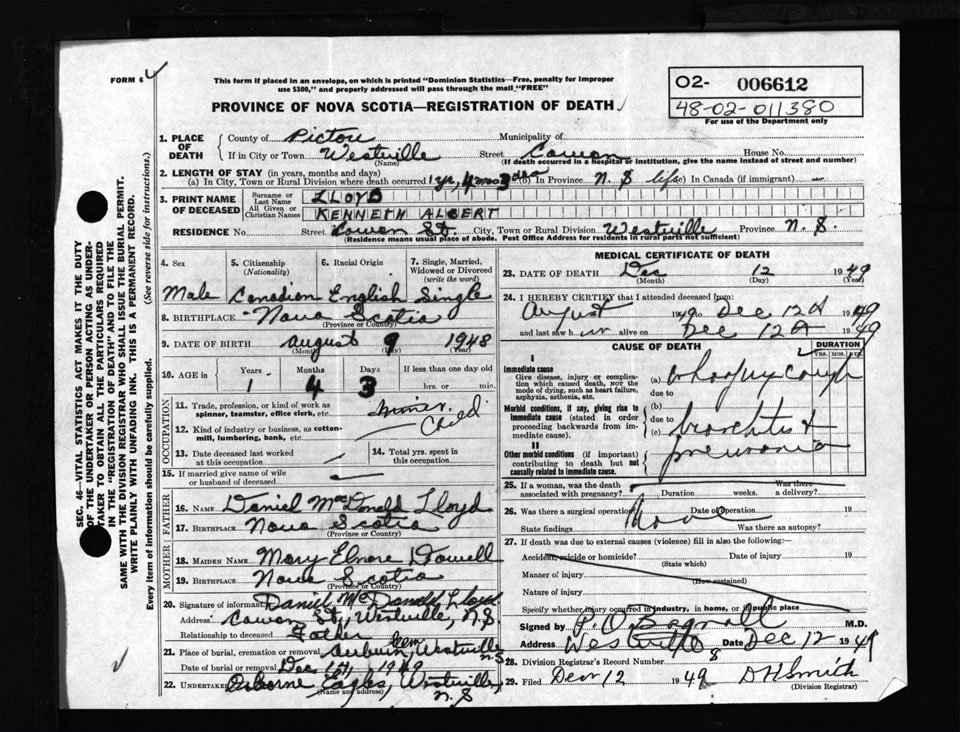 FORM 6
This form if placed in an envelope, on which is printed "Dominion Statistics—Free, penalty for improper
use $300," and properly addressed will pass through the mail "FREE"
PROVINCE OF NOVA SCOTIA—REGISTRATION OF DEATH
02- 006612
48-02-011380
For use of the Department only
SEC. 46—VITAL STATISTICS ACT MAKES IT THE DUTY
OF THE UNDERTAKER OR PERSON ACTING AS UNDER-
TAKER TO OBTAIN ALL THE PARTICULARS REQUIRED
IN THE "REGISTRATION OF DEATH" AND TO FILE THE
SAME WITH THE DIVISION REGISTRAR WHO SHALL ISSUE THE BURIAL PERMIT.
WRITE PLAINLY WITH UNFADING INK. THIS IS A PERMANENT RECORD.
Every item of information should be carefully supplied. (See reverse side for instructions.)
1. PLACE OF DEATH
County of Pictou Municipality of
If in City or Town Westville Street Cowan House No.
(Name) (If death occurred in a hospital or institution, give the name instead of street and number)
2. LENGTH OF STAY (in years, months and days)
(a) In City, Town or Rural Division where death occurred 1 yr, 4 mos 3 dos (b) In Province N. S life (c) In Canada (if immigrant) —
3. PRINT NAME OF DECEASED
Surname or Last Name LLOYD
All Given or Christian Names KENNETH ALBERT
RESIDENCE No. Street Cowan St. City, Town or Rural Division Westville Province N. S.
(Residence means usual place of abode. Post Office Address for residents in rural parts not sufficient)
4. Sex 5. Citizenship (Nationality) 6. Racial Origin 7. Single, Married, Widowed or Divorced (write the word)
Male Canadian English Single
8. BIRTHPLACE Nova Scotia
(Province or Country)
9. DATE OF BIRTH August 9 1948
(Month) (Day) (Year)
10. AGE in Years Months Days If less than one day old
1 4 3 hrs. or min.
OCCUPATION
11. Trade, profession, or kind of work as spinner, teamster, office clerk, etc.
12. Kind of industry or business, as cotton-mill, lumbering, bank, etc. Child
13. Date deceased last worked at this occupation
14. Total yrs. spent in this occupation
15. If married give name of wife or husband of deceased
FATHER
16. NAME Daniel MacDonald Lloyd
17. BIRTHPLACE Nova Scotia
(Province or Country)
MOTHER
18. MAIDEN NAME Mary Elnore Dowell
19. BIRTHPLACE Nova Scotia
(Province or Country)
20. Signature of informant Daniel McDonald Lloyd
Address Cowan St, Westville, N.S
Relationship to deceased Father
21. Place of burial, cremation or removal Auburn Cem, Westville N.S
Date of burial or removal Dec 14, 1949
22. Undertaker Osborne Eagles, Westville, N.S
(Name and address)
MEDICAL CERTIFICATE OF DEATH
23. DATE OF DEATH Dec 12 1949
(Month) (Day) (Year)
24. I HEREBY CERTIFY that I attended deceased from:
August 1949 to Dec 12th 1949
and last saw him alive on Dec 12th 1949
CAUSE OF DEATH
DURATION
YRS. MOS. DYS.
I
Immediate cause
Give disease, injury or complication which caused death, NOT the mode of dying, such as heart failure, asphyxia, asthenia, etc.
(a) Whooping cough
due to
Morbid conditions, if any, giving rise to immediate cause (stated in order proceeding backwards from immediate cause).
(b)
due to
(c) bronchitis & pneumonia
II
Other morbid conditions (if important) contributing to death but not causally related to immediate cause.
25. If a woman, was the death associated with pregnancy? Duration weeks. Was there a delivery?
26. Was there a surgical operation? None Date of operation 19
State findings Was there an autopsy?
27. If death was due to external causes (violence) fill in also the following:
Accident, suicide or homicide? Date of injury 19
(State which)
Manner of injury
(How sustained)
Nature of injury
Specify whether injury occurred in industry, in home, or in public place
Signed by P. O. Bagnall M.D.
Address Westville Date Dec 12 1949
28. Division Registrar's Record Number 8
29. Filed Dec 12 1949 D H Smith
(Division Registrar)